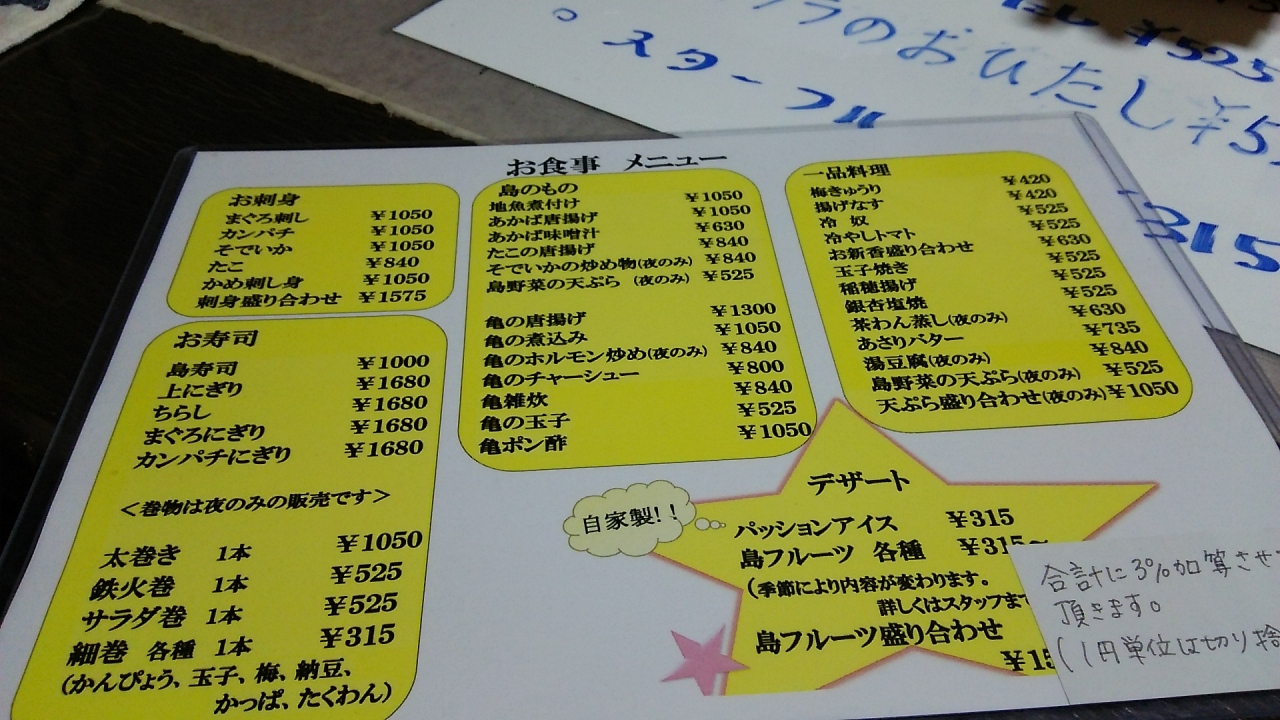 のおひたし ¥5
¥525
スターフル
315
お食事 メニュー
お刺身
まぐろ刺し ¥1050
カンパチ ¥1050
そでいか ¥1050
たこ ¥840
かめ刺し身 ¥1050
刺身盛り合わせ ¥1575
お寿司
島寿司 ¥1000
上にぎり ¥1680
ちらし ¥1680
まぐろにぎり ¥1680
カンパチにぎり ¥1680
<巻物は夜のみの販売です>
太巻き 1本 ¥1050
鉄火巻 1本 ¥525
サラダ巻 1本 ¥525
細巻 各種 1本 ¥315
(かんぴょう、玉子、梅、納豆、
かっぱ、たくわん)
島のもの
地魚煮付け ¥1050
あかば唐揚げ ¥1050
あかば味噌汁 ¥630
たこの唐揚げ ¥840
そでいかの炒め物(夜のみ) ¥840
島野菜の天ぷら (夜のみ) ¥525
亀の唐揚げ ¥1300
亀の煮込み ¥1050
亀のホルモン炒め(夜のみ) ¥840
亀のチャーシュー ¥800
亀雑炊 ¥840
亀の玉子 ¥525
亀ポン酢 ¥1050
一品料理
梅きゅうり ¥420
揚げなす ¥420
冷 奴 ¥525
冷やしトマト ¥525
お新香盛り合わせ ¥630
玉子焼き ¥525
稲穂揚げ ¥525
銀杏塩焼 ¥525
茶わん蒸し(夜のみ) ¥630
あさりバター ¥735
湯豆腐(夜のみ) ¥840
島野菜の天ぷら(夜のみ) ¥525
天ぷら盛り合わせ(夜のみ) ¥1050
自家製!!
デザート
パッションアイス ¥315
島フルーツ 各種 ¥315~
(季節により内容が変わります。
詳しくはスタッフまで
島フルーツ盛り合わせ
¥15
合計に3%加算させ
頂きます。
(1円単位は切り捨